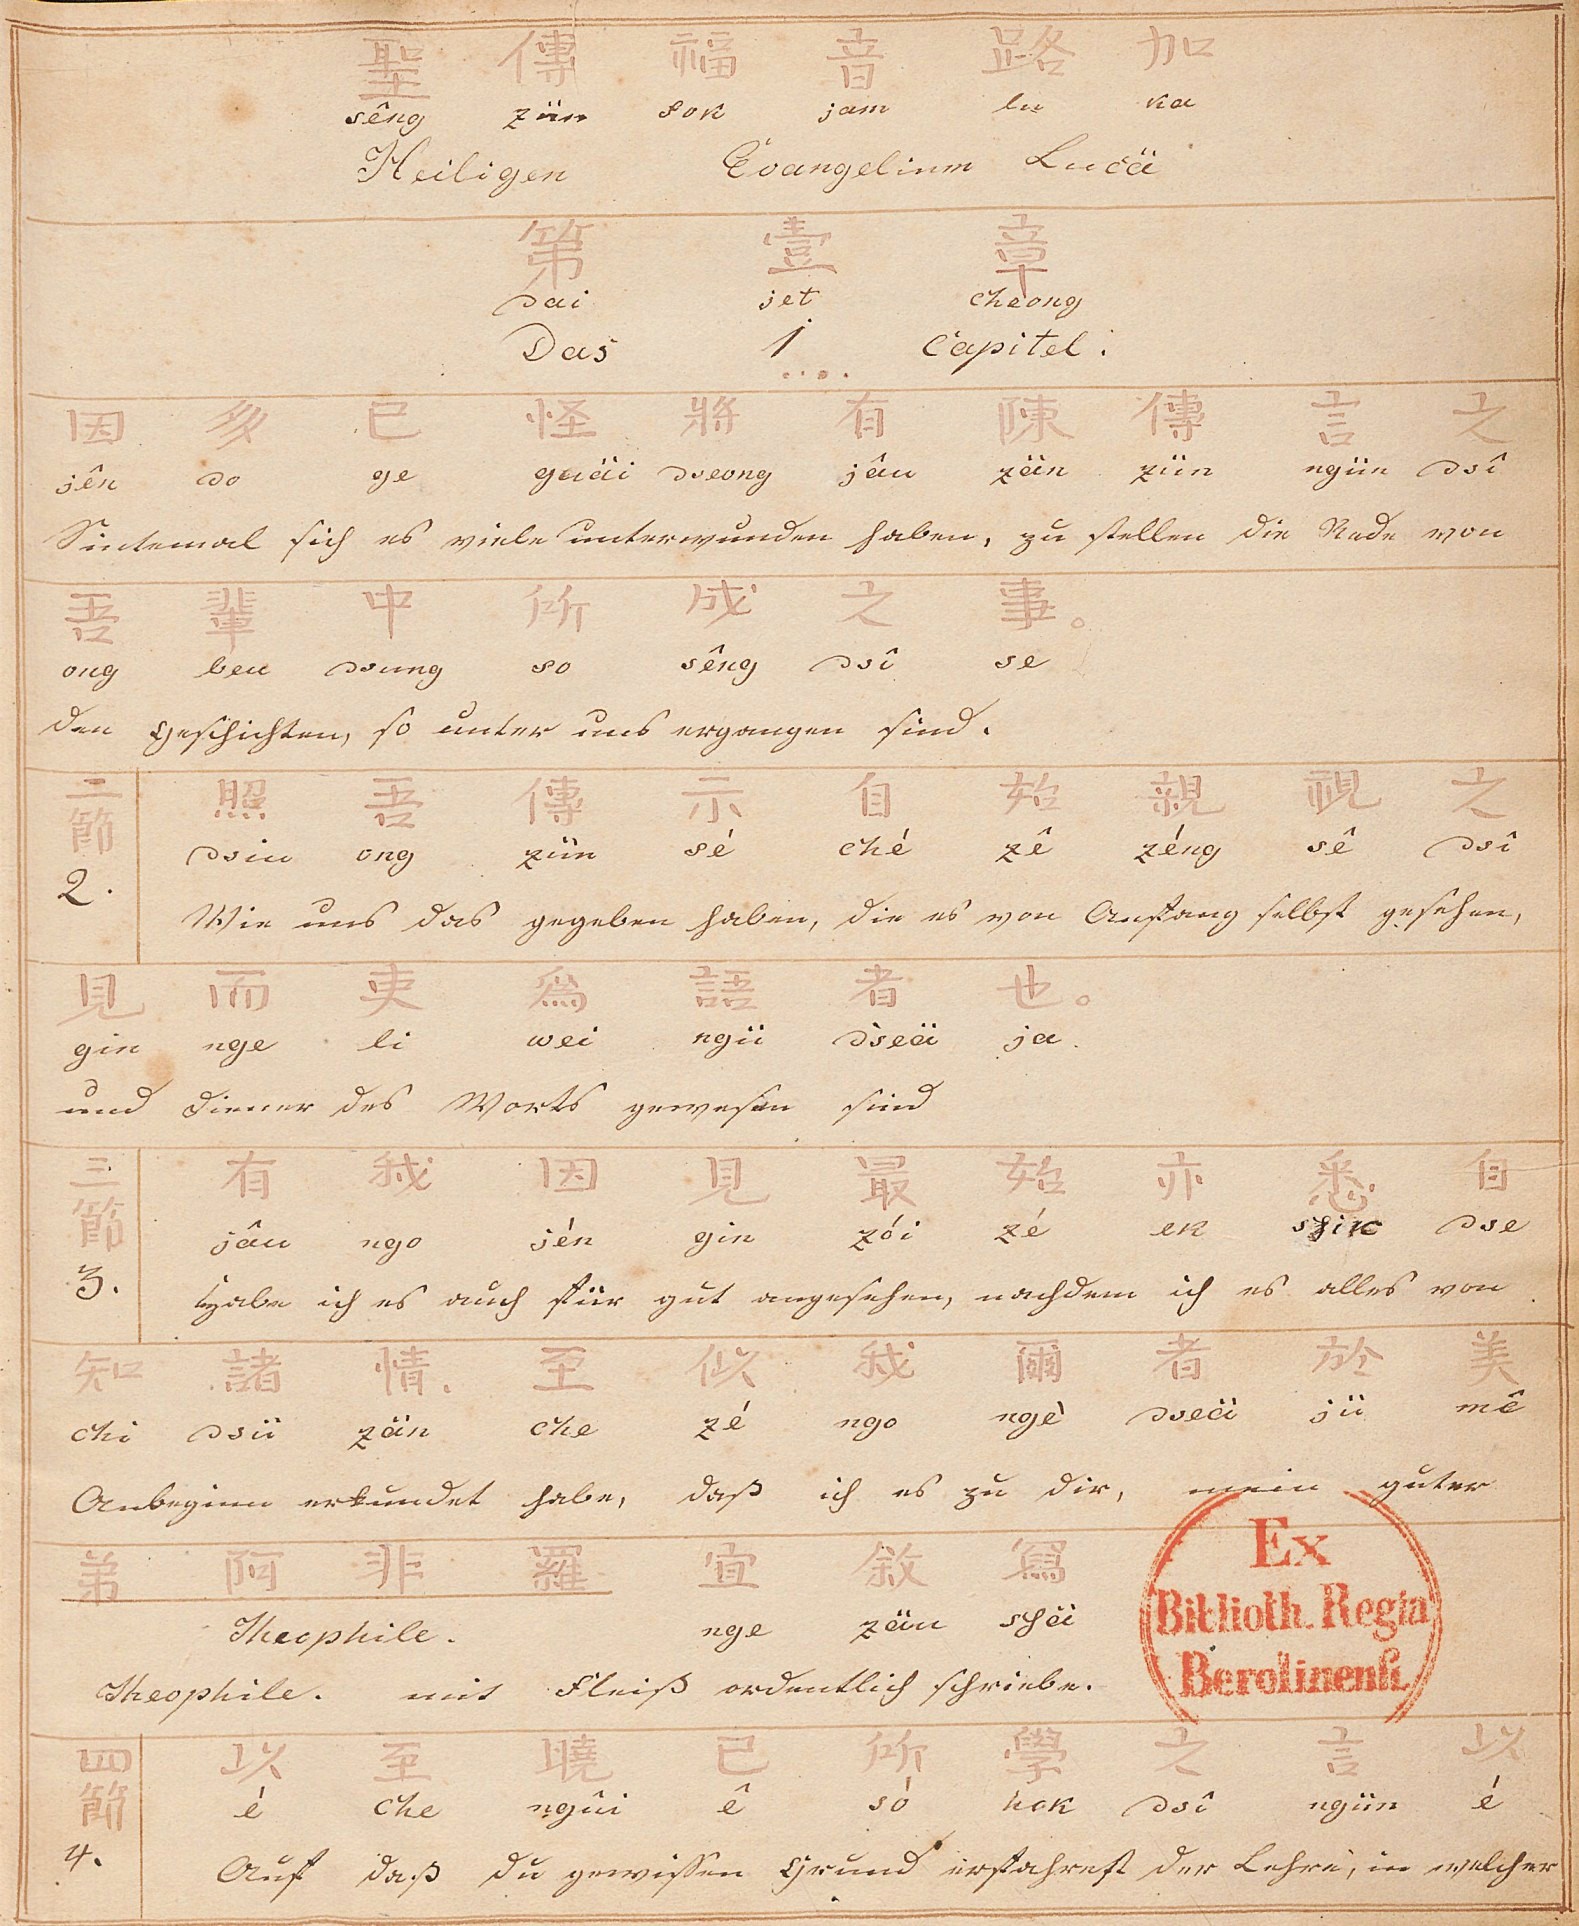 聖 傳 福 音 路 加
sêng zün fok jam lu ka
Heiligen Evangelium Lucä
第 壹 章
dai jet cheong
Das 1 Capitel.
因 多 已 怪 將 有 陳 傳 言 之
jên do ge guäi dseong jâu zän zün ngün dsî
Sintemal sich es viele unterwunden haben, zu stellen die Rede von
吾 輩 中 所 成 之 事。
ong beu dsung so sêng dsî se
den Geschichten, so unter uns ergangen sind.
二節 照 吾 傳 示 自 始 親 視 之
dsiu ong zün sé ché zê zéng sê dsî
2. Wie uns das gegeben haben, die es von Anfang selbst gesehen,
見 而 吏 為 語 者 也。
gin nge li wei ngü dseä ja.
und Diener des Worts gewesen sind
三節 有 我 因 見 最 始 亦 悉 自
jâu ngo jén gin zói zé ek shik dse
3. Habe ich es auch für gut angesehen, nachdem ich es alles von
知 諸 情、 至 似 我 爾 者 於 美
chi dsü zän che zé ngo ngè dseä jü mê
Anbeginn erkundet habe, daß ich es zu dir, mein guter
弟 阿 非 羅 宜 敘 寫
Theophile. nge zäu shä
Theophile. mit Fleiß ordentlich schriebe.
Ex
Biblioth. Regia
Berolinensi.
四節 以 至 曉 已 所 學 之 言 以
é che ngûi ê só hok dsî ngün é
4. Auf daß du gewissen Grund erfahrest der Lehre, in welcher